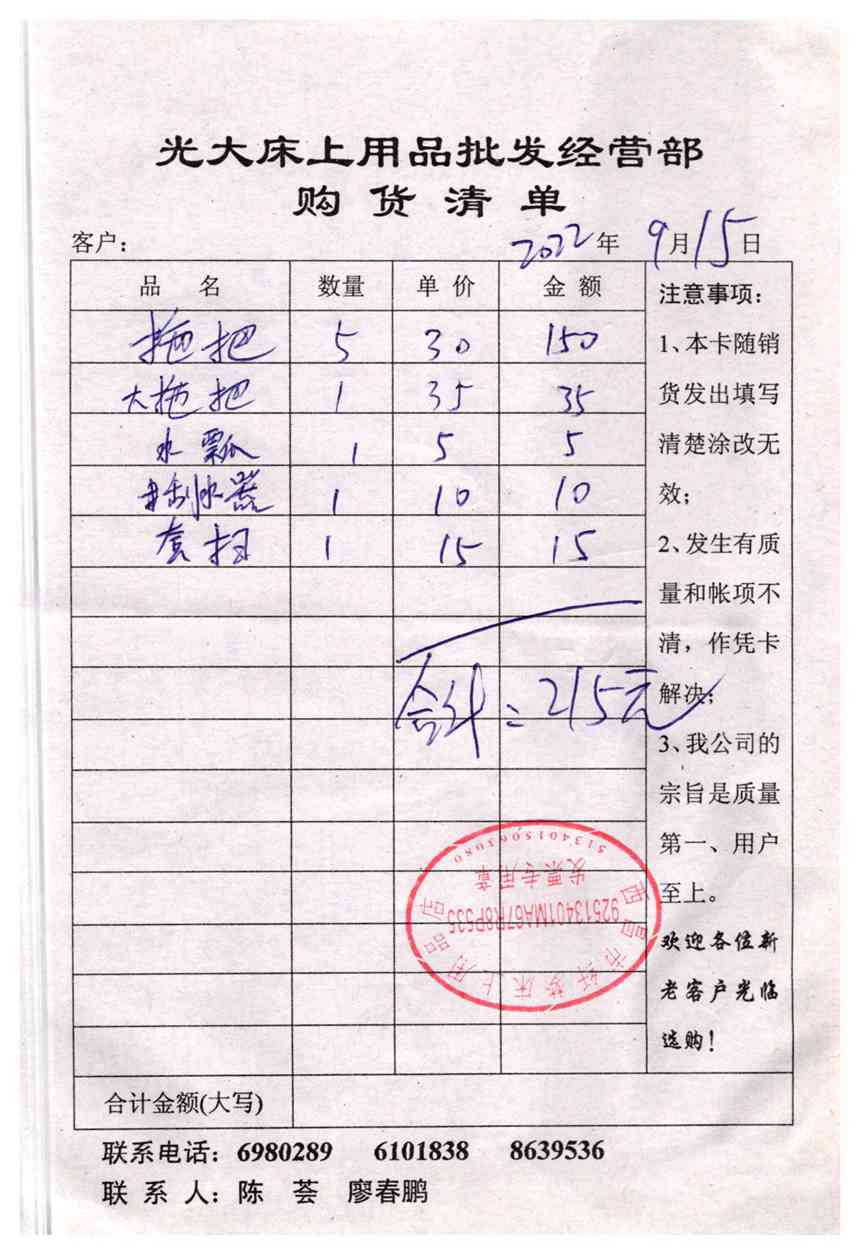 光大床上用品批发经营部
购货清单
客户： 2022年9月15日
品名 数量 单价 金额
拖把 5 30 150
大拖把 1 35 35
水瓢 1 5 5
刮水器 1 10 10
套扫 1 15 15
合计=215元
注意事项：
1、本卡随销
货发出填写
清楚涂改无
效；
2、发生有质
量和帐项不
清，作凭卡
解决；
3、我公司的
宗旨是质量
第一、用户
至上。
欢迎各位新
老客户光临
选购！
西昌市纤梦床上用品店
92513401MA67R8P535
发票专用章
5134015063080
合计金额(大写)
联系电话：6980289 6101838 8639536
联系人：陈荟 廖春鹏